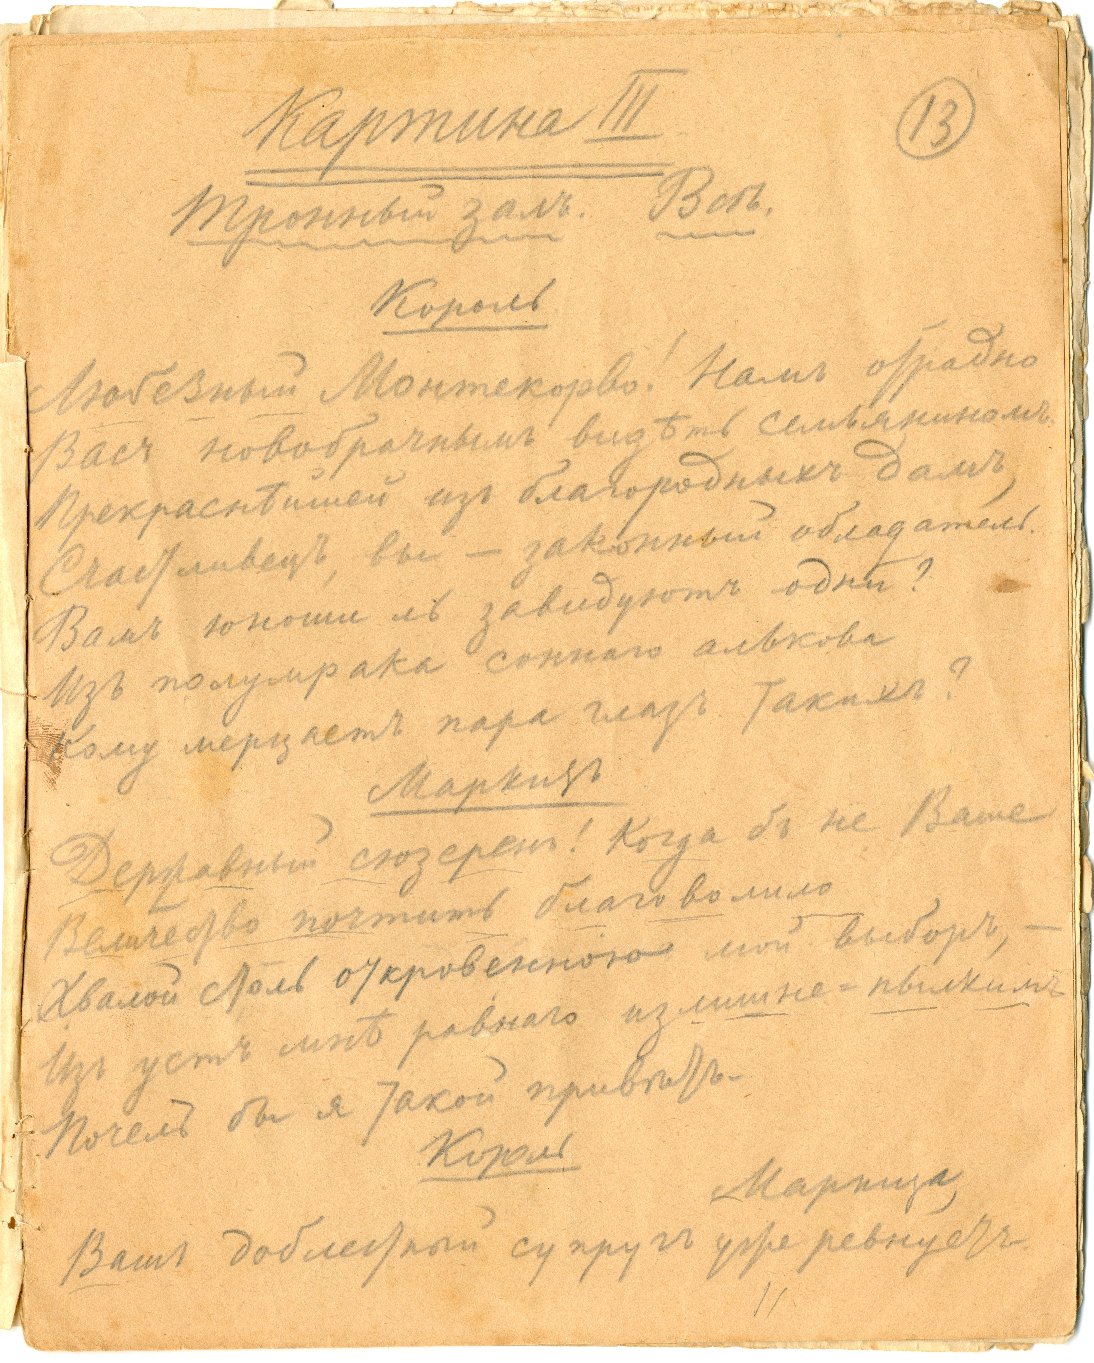 Картина III
13
Тронный залъ. Всѣ.
Король
Любезный Монтекорво! Намъ отрадно
Васъ новобрачнымъ видѣть семьяниномъ.
Прекраснѣйшей изъ благородныхъ дамъ,
Счастливецъ, вы — законный обладатель.
Вамъ юноши ль завидуютъ одни?
Изъ полумрака соннаго алькова
Кому мерцаетъ пара глазъ такихъ?
Маркизъ
Державный сюзеренъ! Когда бъ не Ваше
Величество почтить благоволило
Хвалой столь откровенною мой выборъ, —
Изъ устъ мнѣ равнаго излишне-пылкимъ
Почелъ бы я такой привѣтъ.
Король
Маркиза,
Вашъ доблестный супругъ уже ревнуетъ.
11